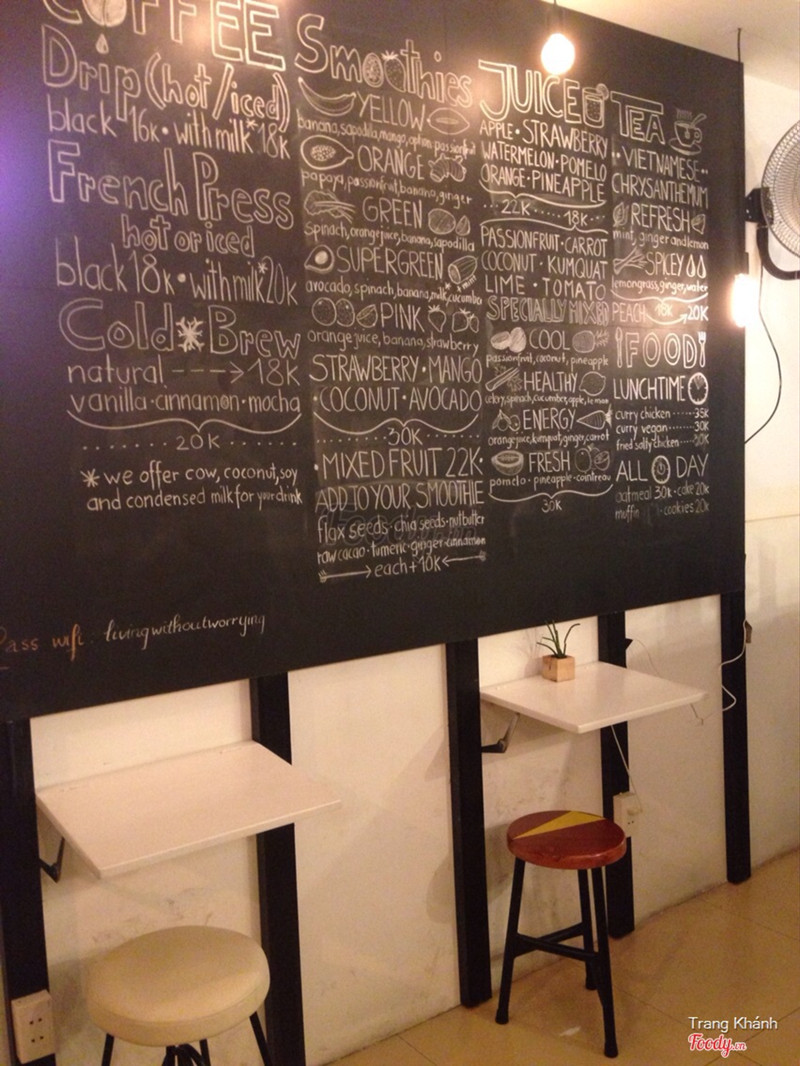 COFFEE
Drip (hot/iced)
black 16k • with milk* 18k
French Press
hot or iced
black 18k • with milk* 20k
Cold * Brew
natural ---→ 18k
vanilla • cinnamon • mocha
20k
* we offer cow, coconut, soy
and condensed milk for your drink
Pass wifi: livingwithoutworrying
Smoothies
YELLOW
banana, sapodilla, mango, option: passionfruit
ORANGE
papaya, passionfruit, banana, ginger
GREEN
spinach, orange juice, banana, sapodilla
SUPERGREEN
avocado, spinach, banana, milk, cucumber
PINK
orange juice, banana, strawberry
STRAWBERRY • MANGO
• COCONUT • AVOCADO
30K
• MIXED FRUIT 22K •
ADD TO YOUR SMOOTHIE
flax seeds • chia seeds • nutbutter
raw cacao • tumeric • ginger • cinnamon
→ each + 10k ←
JUICE
APPLE • STRAWBERRY
WATERMELON • POMELO
ORANGE • PINEAPPLE
22K 18K
PASSIONFRUIT • CARROT
COCONUT • KUMQUAT
LIME • TOMATO
SPECIALLY MIXED
COOL
passionfruit, coconut, pineapple
HEALTHY
celery, spinach, cucumber, apple, lemon
ENERGY
orange juice, kumquat, ginger, carrot
FRESH
pomelo • pineapple • cointreau
30K
TEA
• VIETNAMESE •
CHRYSANTHEMUM
REFRESH
mint, ginger and lemon
SPICEY
lemongrass, ginger, water
PEACH 18K → 20K
FOOD
LUNCHTIME
curry chicken 35K
curry vegan 30K
fried salty chicken 30K
ALL DAY
oatmeal 30K • cake 20K
muffin • cookies 20K
Trang Khánh
Foody.vn